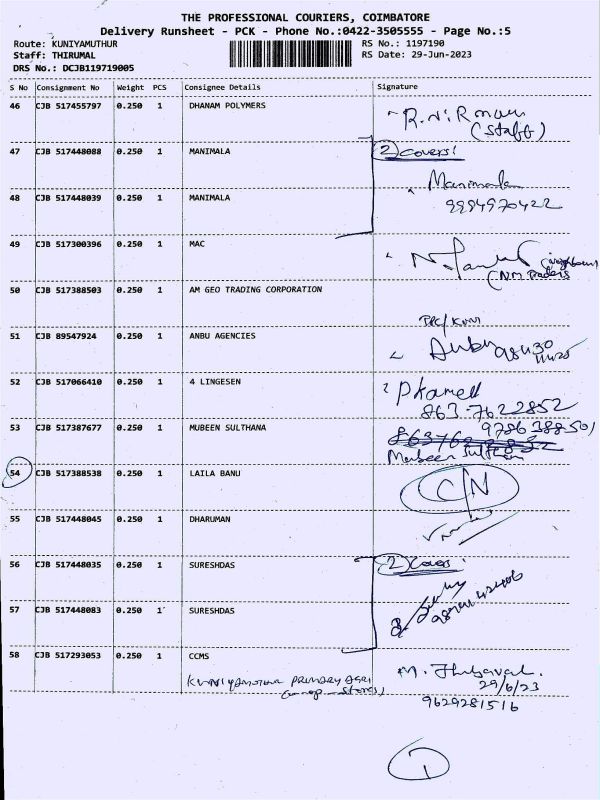 THE PROFESSIONAL COURIERS, COIMBATORE
Delivery Runsheet - PCK - Phone No.:0422-3505555 - Page No.:5
Route: KUNIYAMUTHUR RS No.: 1197190
Staff: THIRUMAL RS Date: 29-Jun-2023
DRS No.: DCJB119719005
S No Consignment No Weight PCS Consignee Details Signature
46 CJB 517455797 0.250 1 DHANAM POLYMERS
(Staff)
47 CJB 517448088 0.250 1 MANIMALA 2 covers
48 CJB 517448039 0.250 1 MANIMALA Manimala
9994970422
49 CJB 517300396 0.250 1 MAC
50 CJB 517388503 0.250 1 AM GEO TRADING CORPORATION
51 CJB 89547924 0.250 1 ANBU AGENCIES
52 CJB 517066410 0.250 1 4 LINGESEN
863-7622852
53 CJB 517387677 0.250 1 MUBEEN SULTHANA 9786388501
54 CJB 517388538 0.250 1 LAILA BANU C/N
55 CJB 517448045 0.250 1 DHARUMAN
56 CJB 517448035 0.250 1 SURESHDAS 2 covers
57 CJB 517448083 0.250 1 SURESHDAS
58 CJB 517293053 0.250 1 CCMS
KUNIYAMUTHUR PRIMARY AGRI
29/6/23
9629281516